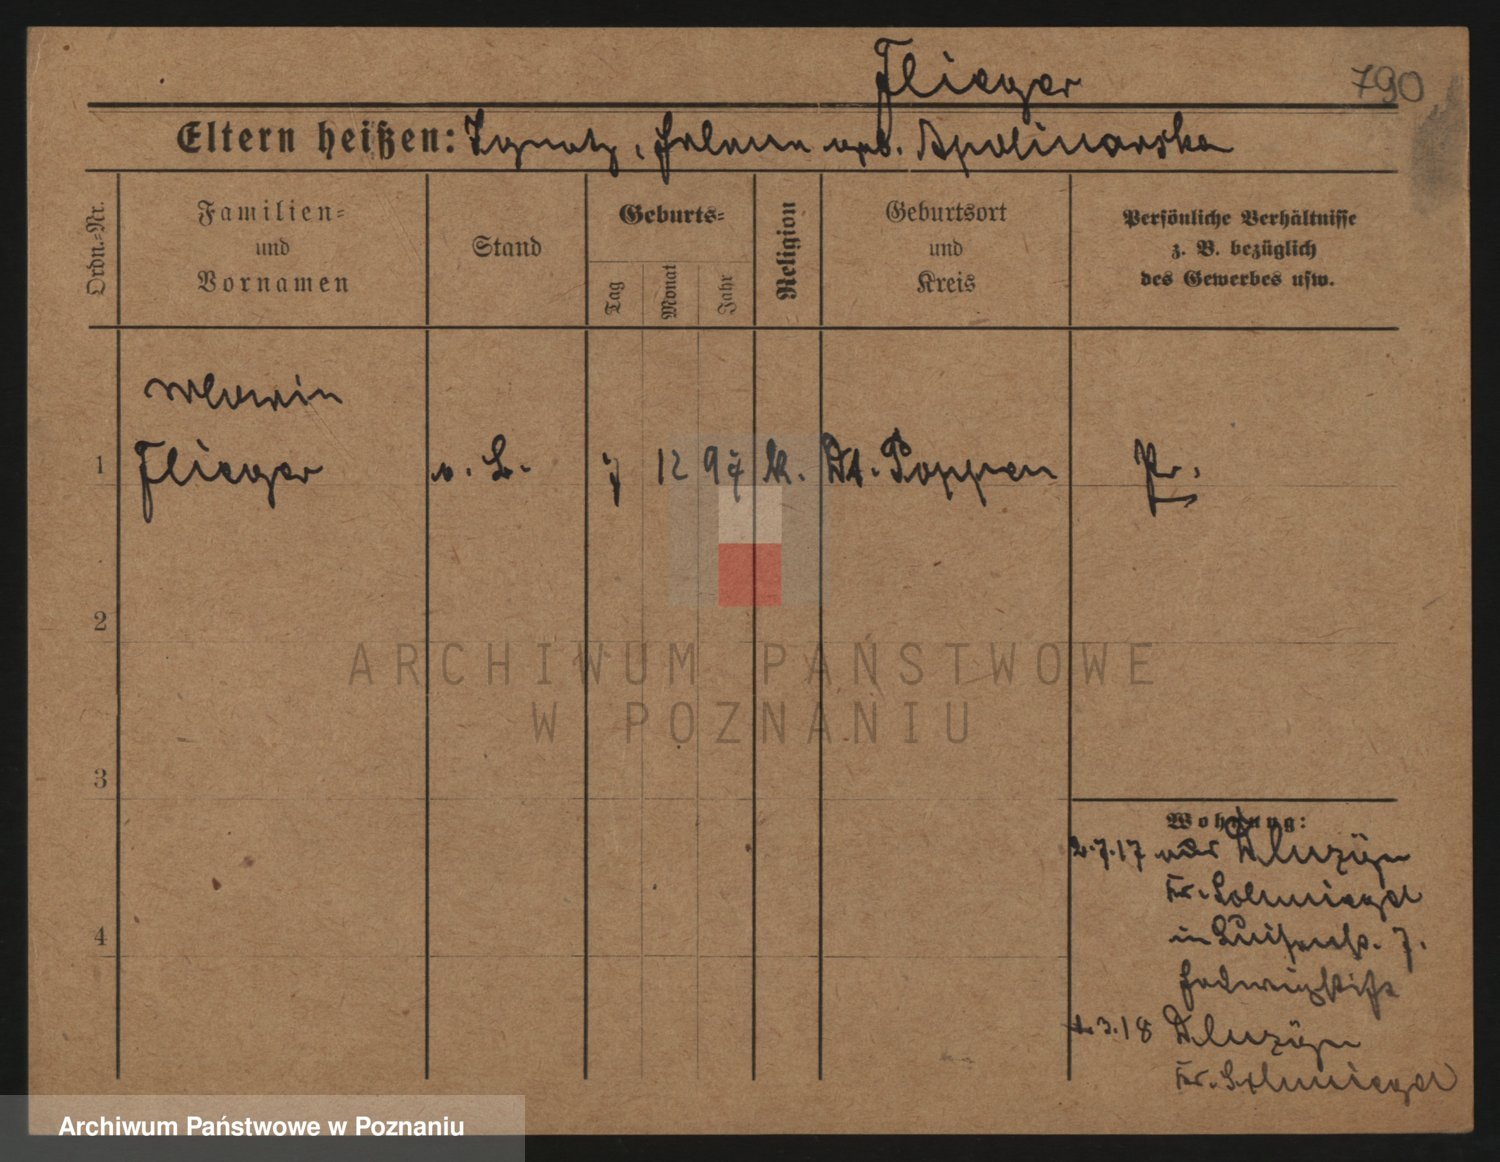 Flieger
790
Eltern heißen: Ignatz, Helene geb. Apolinarska
Ordn.-Nr.
Familien-
und
Vornamen
Stand
Geburts-
Tag
Monat
Jahr
Religion
Geburtsort
und
Kreis
Persönliche Verhältnisse
z. B. bezüglich
des Gewerbes usw.
1
Flieger
o. B.
7
12
97
K.
Dt. Poppen
Pr.
2
3
4
Wohnung:
2.7.17 Dluzyn
Kr. Schmiegel
in Luisenstr. 7.
Hedwigstift
3.18 Dluzyn
Kr. Schmiegel
ARCHIWUM PAŃSTWOWE
W POZNANIU
Archiwum Państwowe w Poznaniu